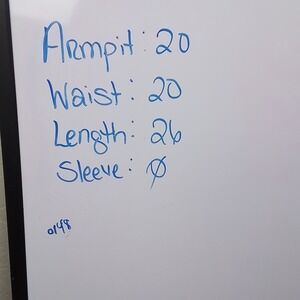 Armpit: 20
Waist: 20
Length: 26
Sleeve: Ø
0148